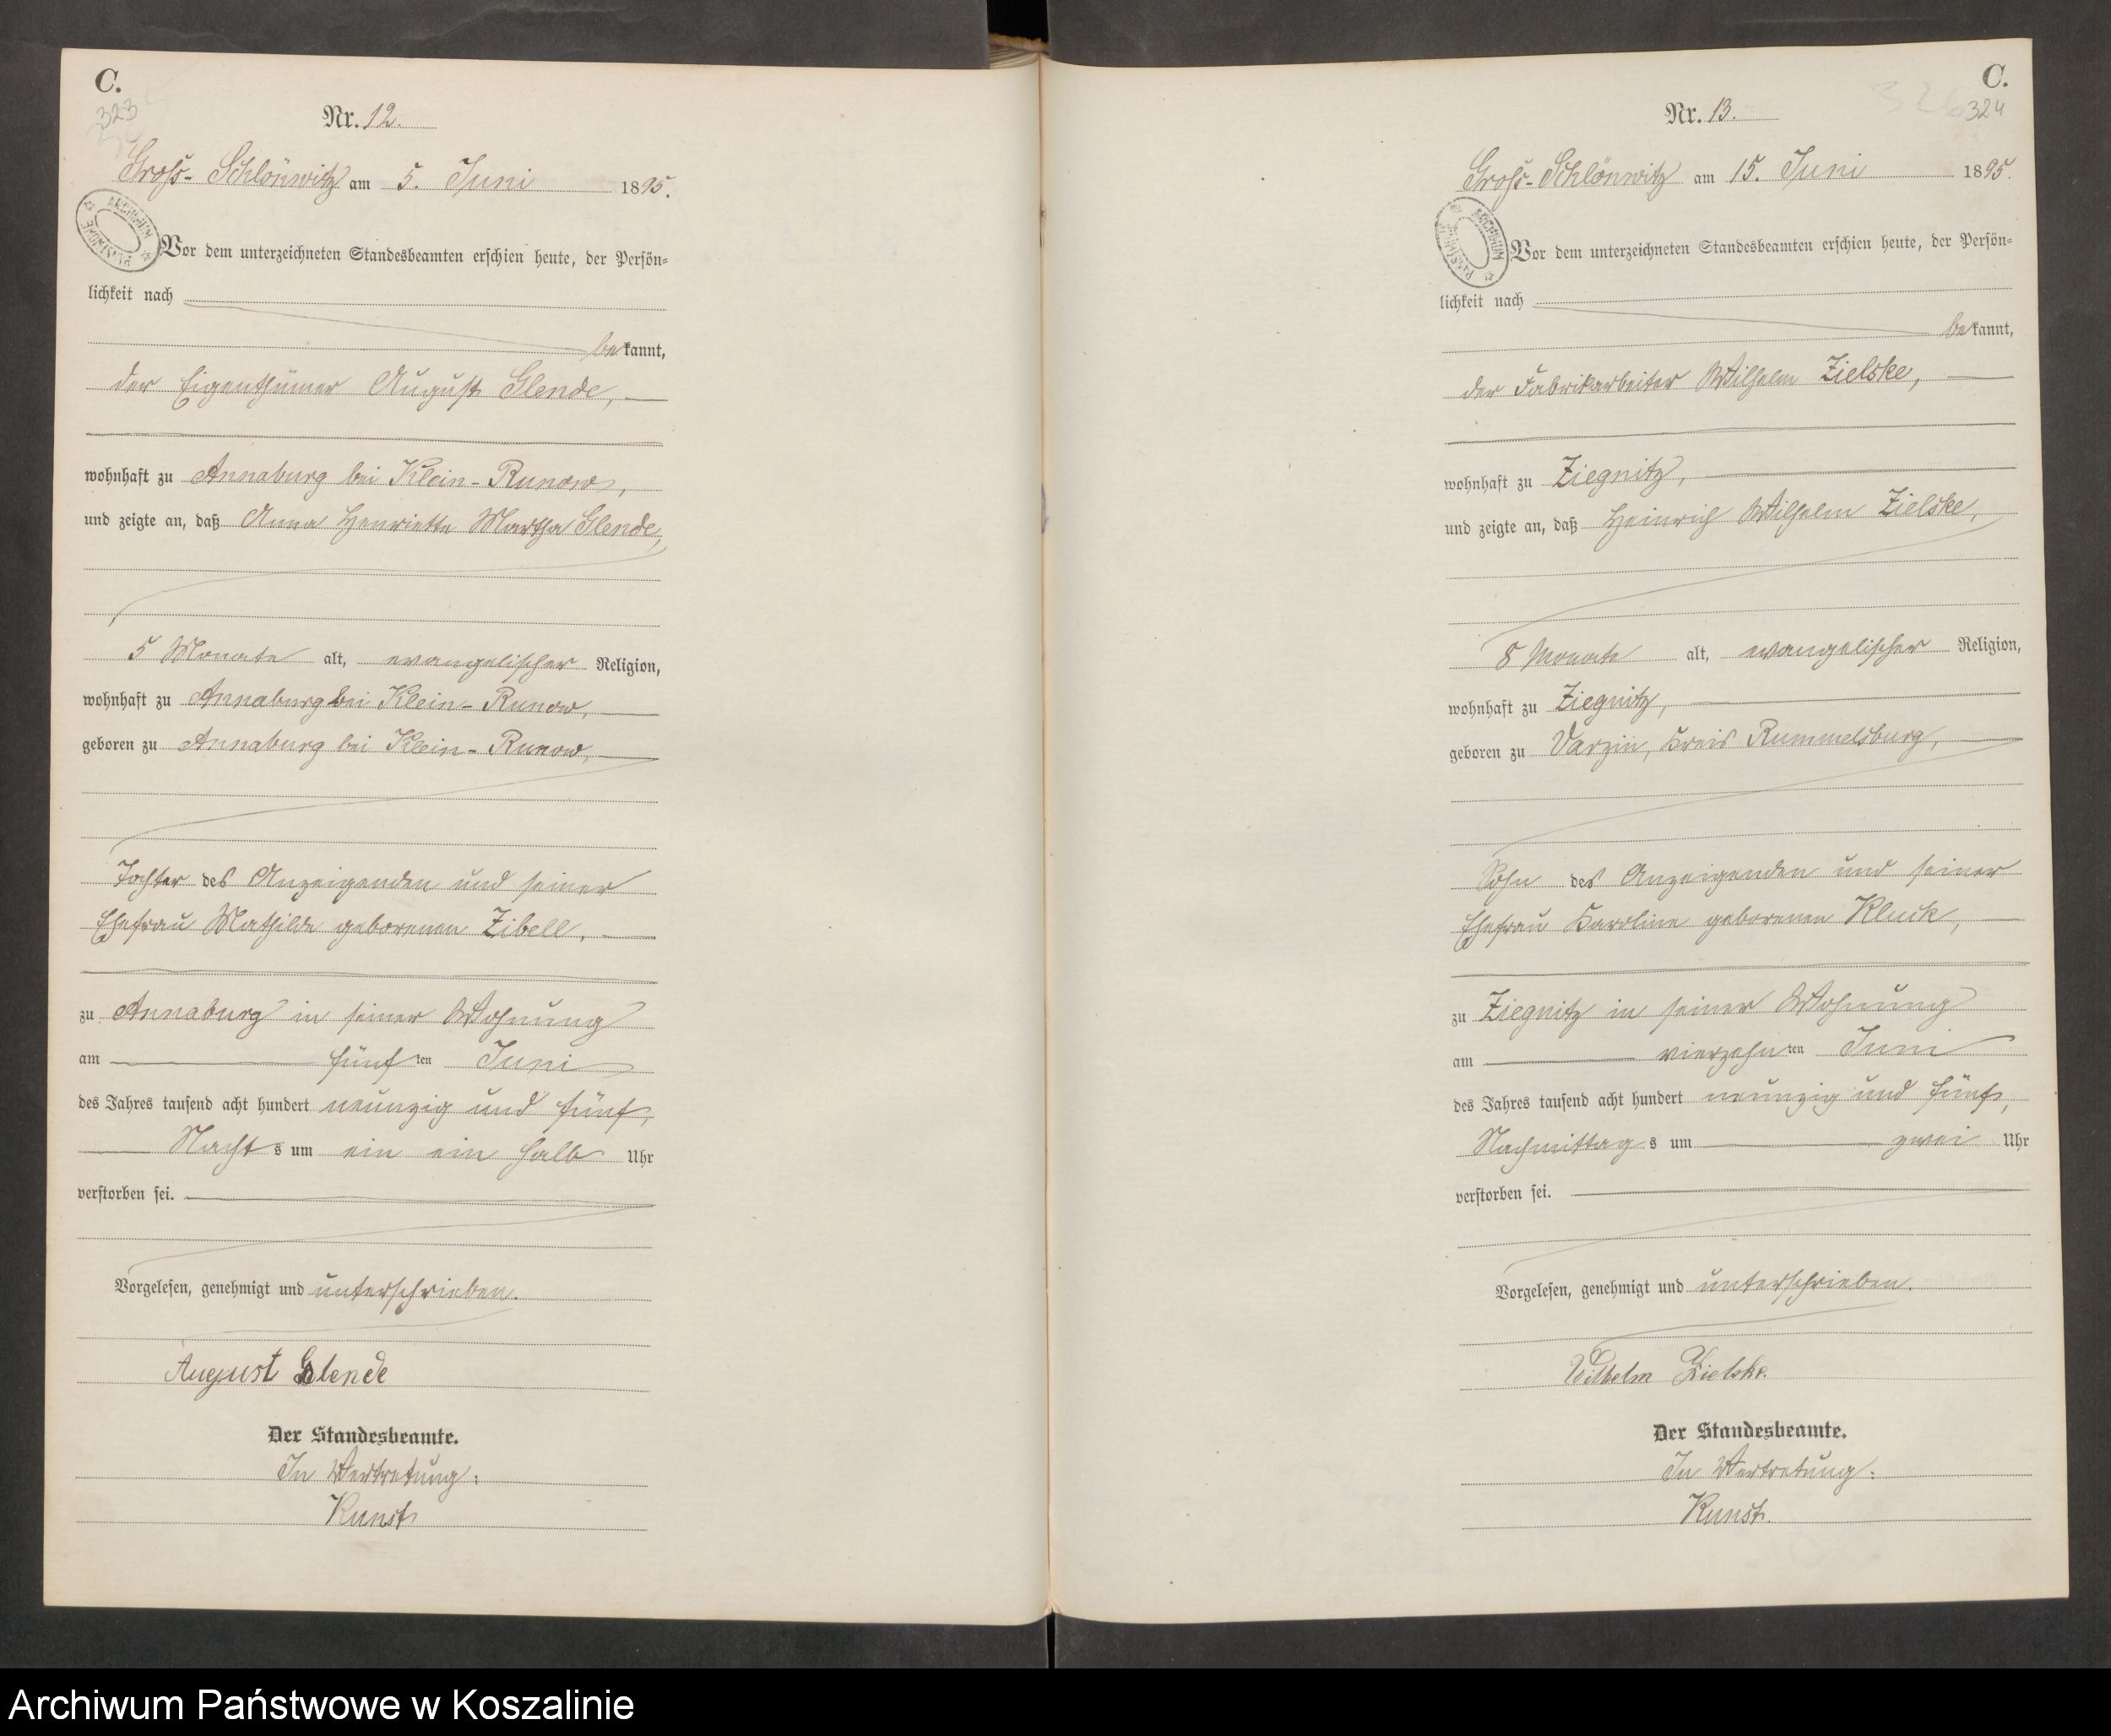 C.
323
Nr. 12.
Gross-Schlönwitz am 5. Juni 1895.
Vor dem unterzeichneten Standesbeamten erschien heute, der Persön-
lichkeit nach
bekannt,
der Eigenthümer August Glende,
wohnhaft zu Annaburg bei Klein-Runow,
und zeigte an, daß Anna Henriette Martha Glende,
5 Monate alt, evangelischer Religion,
wohnhaft zu Annaburg bei Klein-Runow,
geboren zu Annaburg bei Klein-Runow,
Tochter des Anzeigenden und seiner
Ehefrau Mathilde geborenen Zibell,
zu Annaburg in seiner Wohnung
am fünften Juni
des Jahres tausend acht hundert neunzig und fünf,
Nachts um ein ein halb Uhr
verstorben sei.
Vorgelesen, genehmigt und unterschrieben.
August Glende
Der Standesbeamte.
In Vertretung:
Kunst
C.
324
Nr. 13.
Gross-Schlönwitz am 15. Juni 1895.
ARCHIWUM PAŃSTWOWE
Vor dem unterzeichneten Standesbeamten erschien heute, der Persön-
lichkeit nach
bekannt,
der Fabrikarbeiter Wilhelm Zielske,
wohnhaft zu Ziegnitz,
und zeigte an, daß Heinrich Wilhelm Zielske,
8 Monate alt, evangelischer Religion,
wohnhaft zu Ziegnitz,
geboren zu Varzin, Kreis Rummelsburg,
Sohn des Anzeigenden und seiner
Ehefrau Karoline geborenen Kluck,
zu Ziegnitz in seiner Wohnung
am vierzehnten Juni
des Jahres tausend acht hundert neunzig und fünf,
Nachmittags um zwei Uhr
verstorben sei.
Vorgelesen, genehmigt und unterschrieben.
Wilhelm Zielske.
Der Standesbeamte.
In Vertretung:
Kunst.
Archiwum Państwowe w Koszalinie